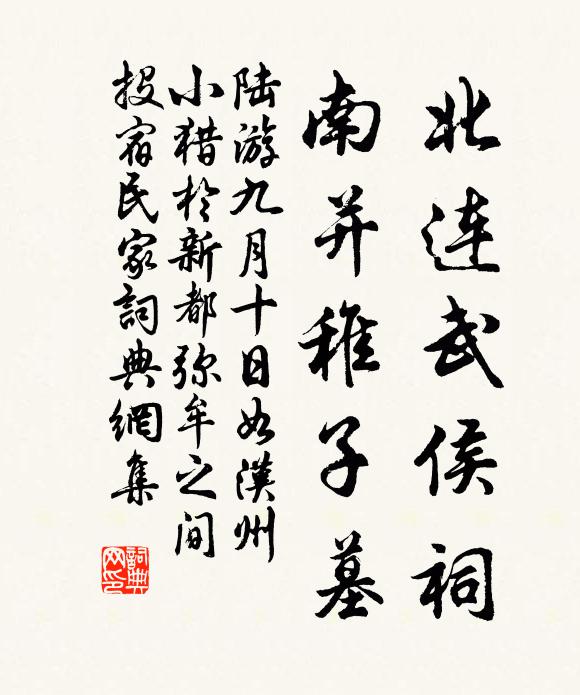 北連武侯祠
南并稚子墓
陆游九月十日如漢州
小猎於新都弥牟之间
投宿民家詞典網集
詞典網印